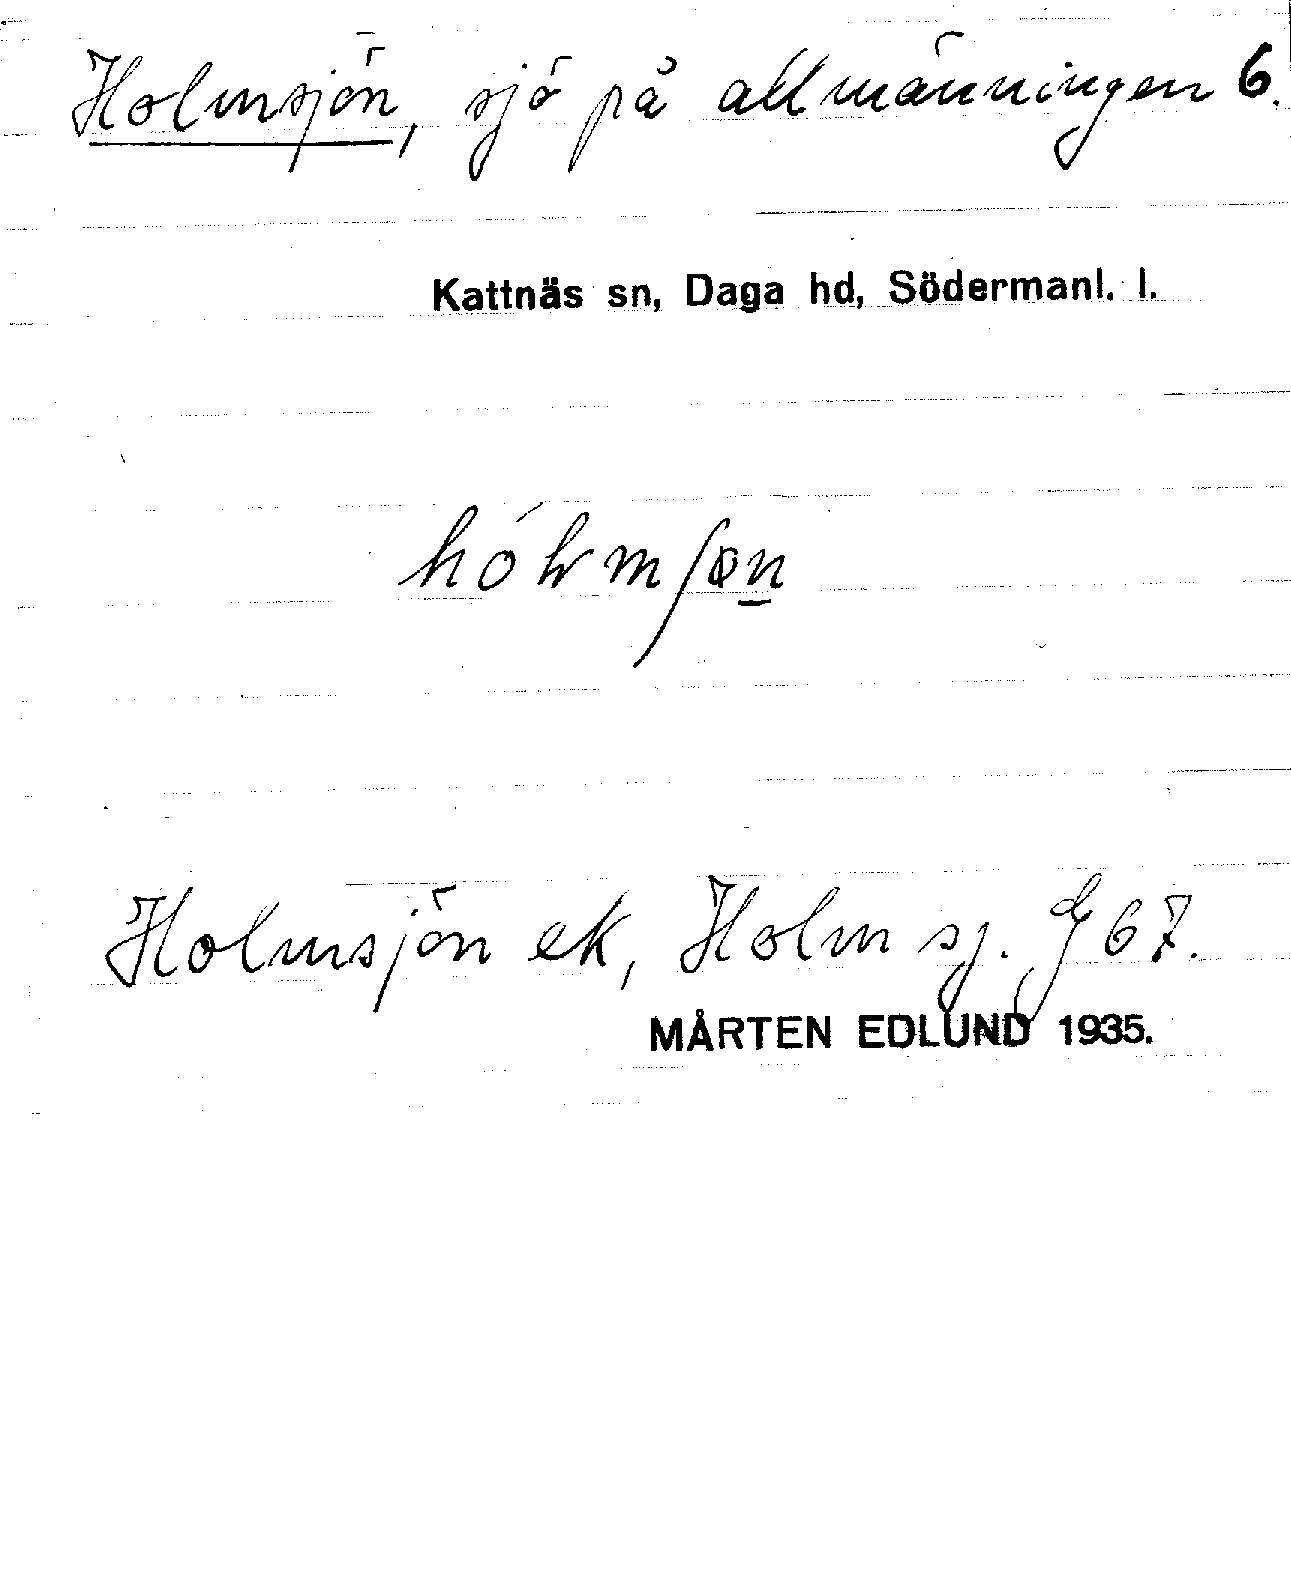 Holmsjön, sjö på allmänningen 6.
Kattnäs sn, Daga hd, Södermanl. l.
Holmsjön ek, Holm sj. G 67.
MÅRTEN EDLUND 1935.